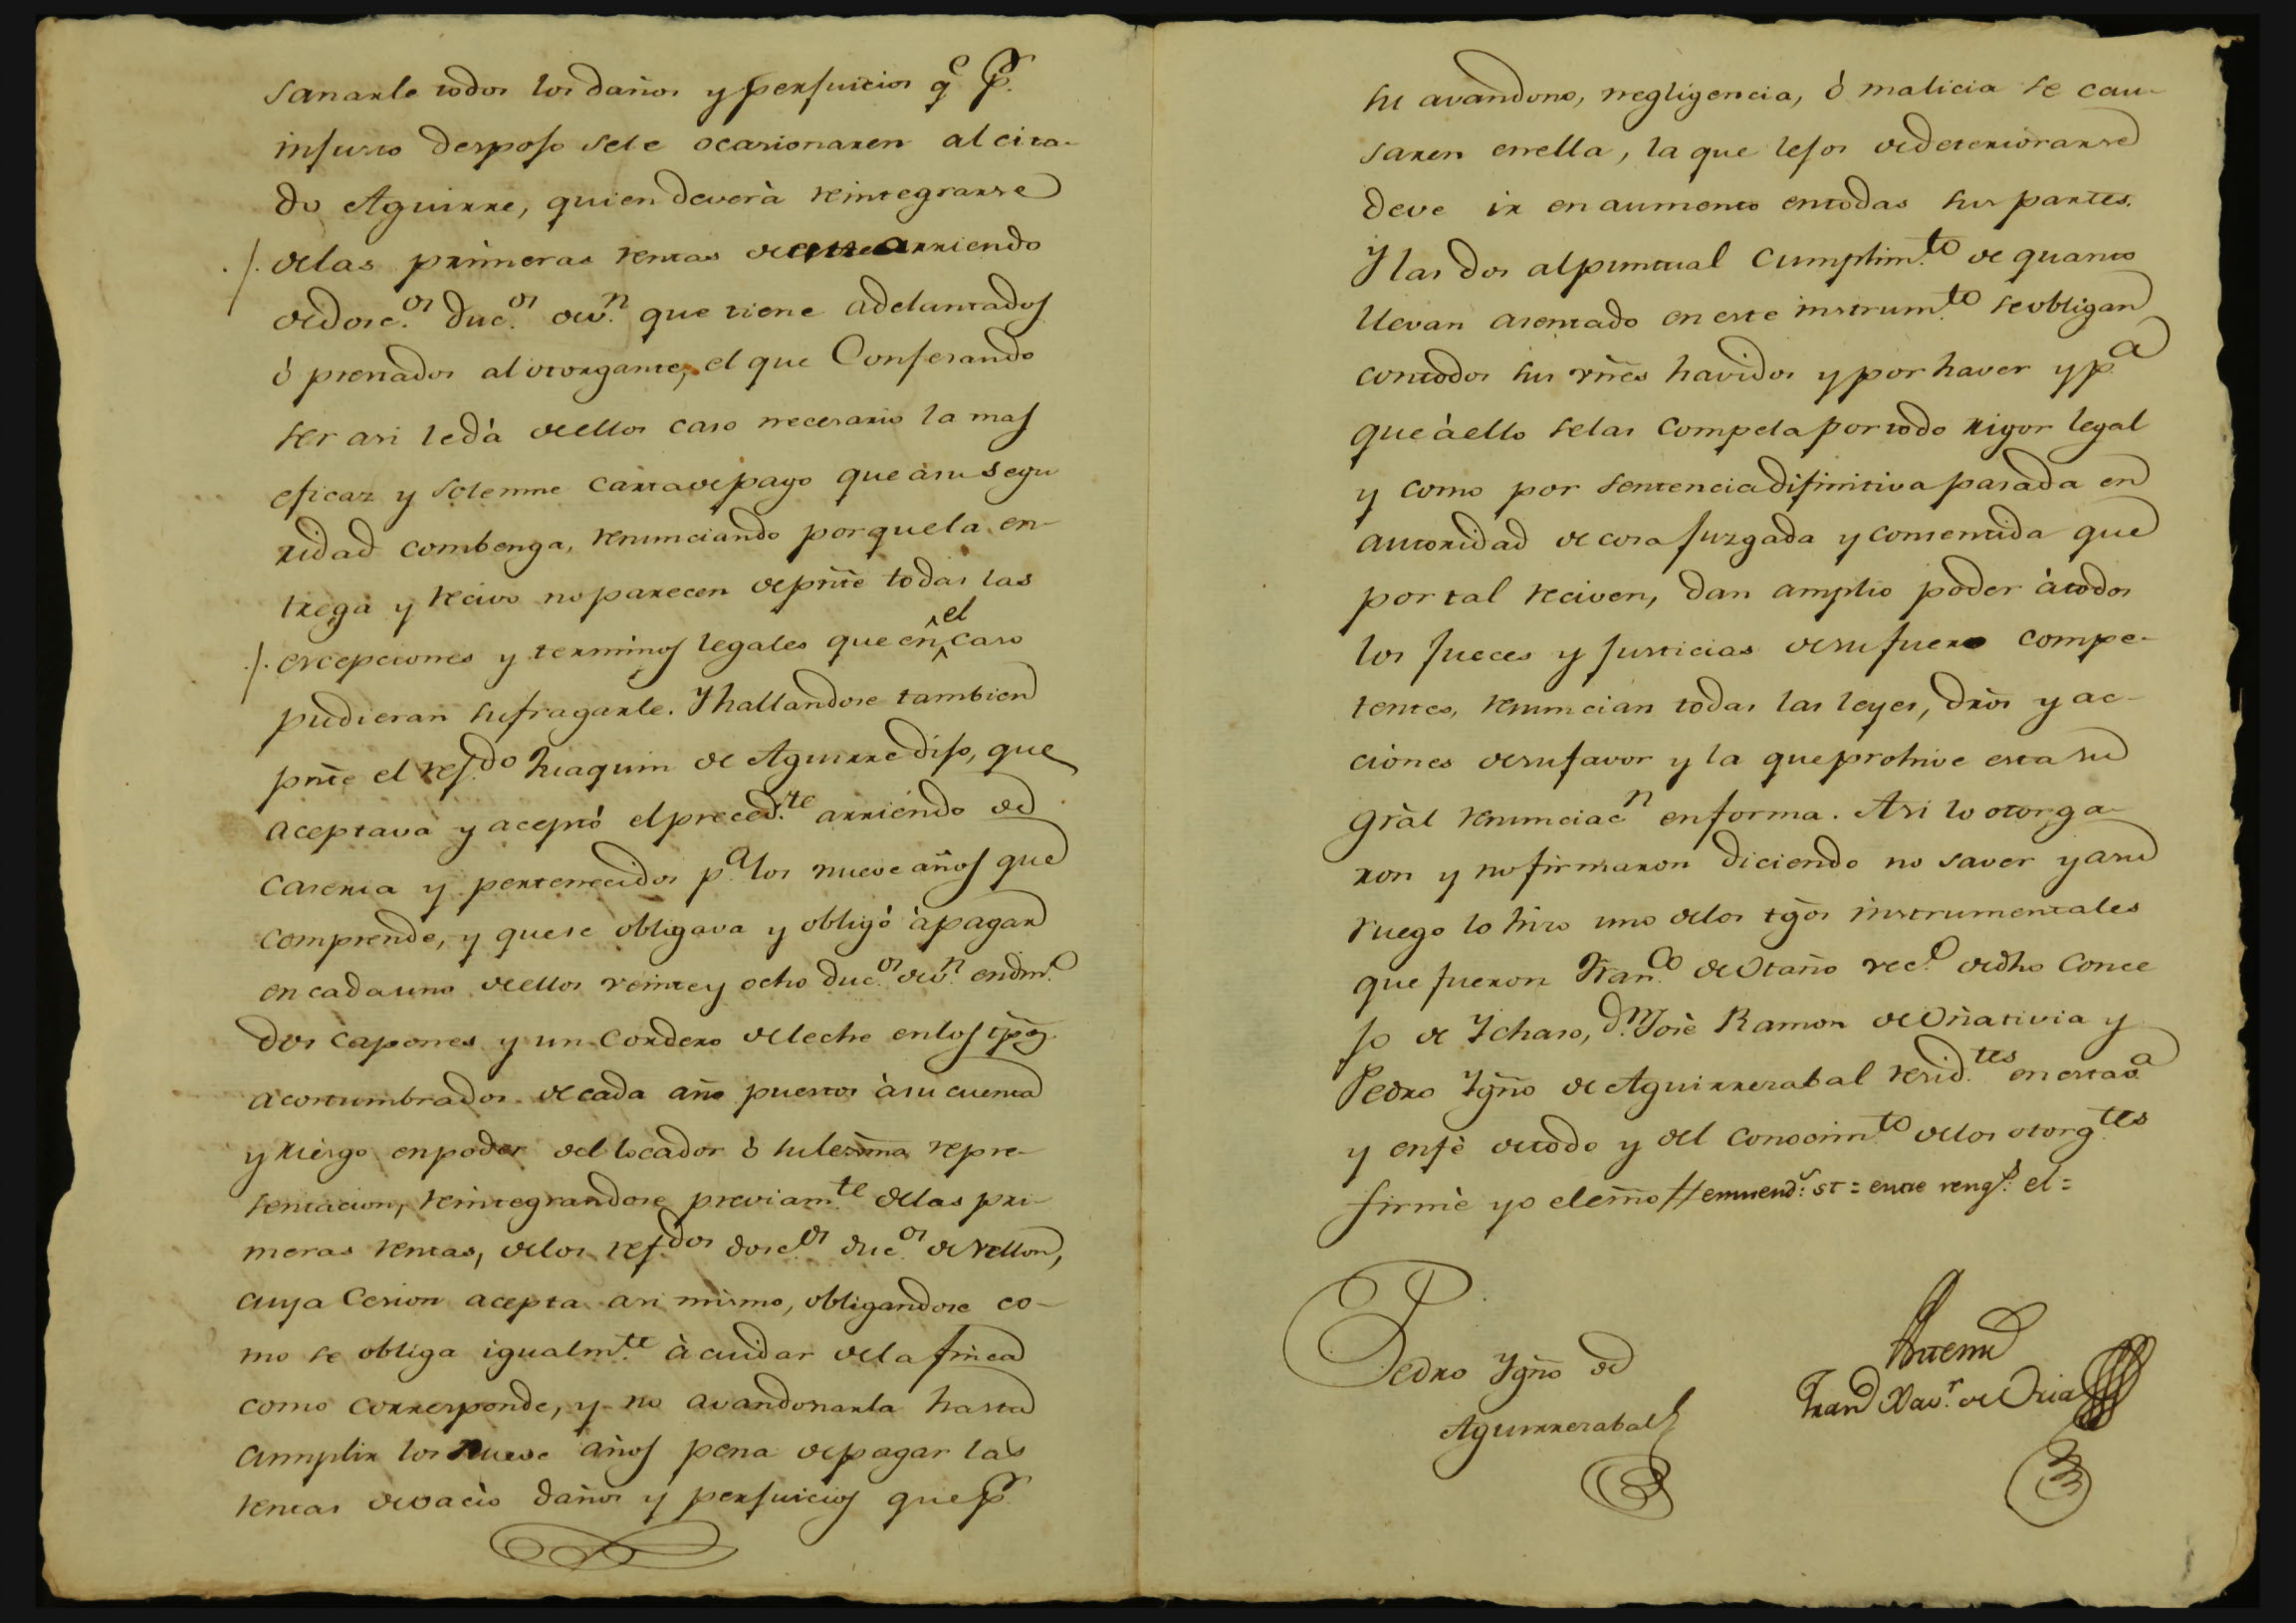 sanarle todos los daños y perjuicios q.e p.r
injusto despojo sele ocasionaren al cita-
do Aguirre, quien deverà reintegrarse
./. delas primeras rentas de este arriendo
dedosc.os duc.os dev.n que tiene adelantados
ò prestados al otorgante, el que Confesando
ser asi ledà deellos caso necesario la mas
eficaz y solemne cartadepago que àsu segu
ridad combenga, renunciando porquela en-
trega y recivo no parecen depñte todas las
./. escepciones y terminos legales que en el caso
pudieran sufragarle. Y hallandose tambien
pñte el ref.do Juaquin de Aguirre dijo, que
aceptava y aceptó elpreced.te arriendo de
caseria y pertenecidos p.a los nueve años que
comprende, y quese obligava y obligó àpagar
en cadauno deellos veinte y ocho duc.os dev.n endin.o
dos capones y un Cordero deleche enlos tp̃os
acostumbrados decada año puestos àsu cuenta
y riesgo enpoder del locador ò sulexma repre-
sentacion, reintegrandose previam.te delas pri-
meras rentas, delos ref.dos dosc.os duc.os de vellon,
cuya Cesion acepta asi mismo, obligandose co-
mo se obliga igualm.te à cuidar dela finca
como corresponde, y no avandonarla hasta
cumplir los nueve años pena depagar las
rentas devacio daños y perjuicios que p.r
su avandono, negligencia, ò malicia se cau-
saren enella, la que lejos dedeteriorarse
deve ir en aumento entodas sus partes.
Y las dos alpuntual cumplim.to de quanto
llevan asentado en este instrum.to seobligan
contodos sus vñes havidos y por haver y p.a
que àello selas compela portodo rigor legal
y como por sentencia difinitiva pasada en
autoridad de cosa juzgada y consentida que
por tal reciven, dan amplio poder àtodos
los jueces y justicias desufuero compe-
tentes, renuncian todas las leyes, dròs y ac-
ciones desufavor y la queprohive esta su
gràl renunciac.n enforma. Asi lo otorga-
ron y nofirmaron diciendo no saver y asu
ruego lo hizo uno delos tgòs instrumentales
que fueron Fran.co deOtaño vec.o dedho Conce
jo de Ychaso, d.n Josè Ramon deOñativia y
Pedro Ygño de Aguirrezabal resid.tes en esta v.a
y enfè detodo y del conocim.to delos otorg.tes
firmè yo elesno // enmend.o: st = entre reng.s: el =
Pedro Ygño de
Aguirrezabal
Antemi
Fran.co Xav.r de Oria